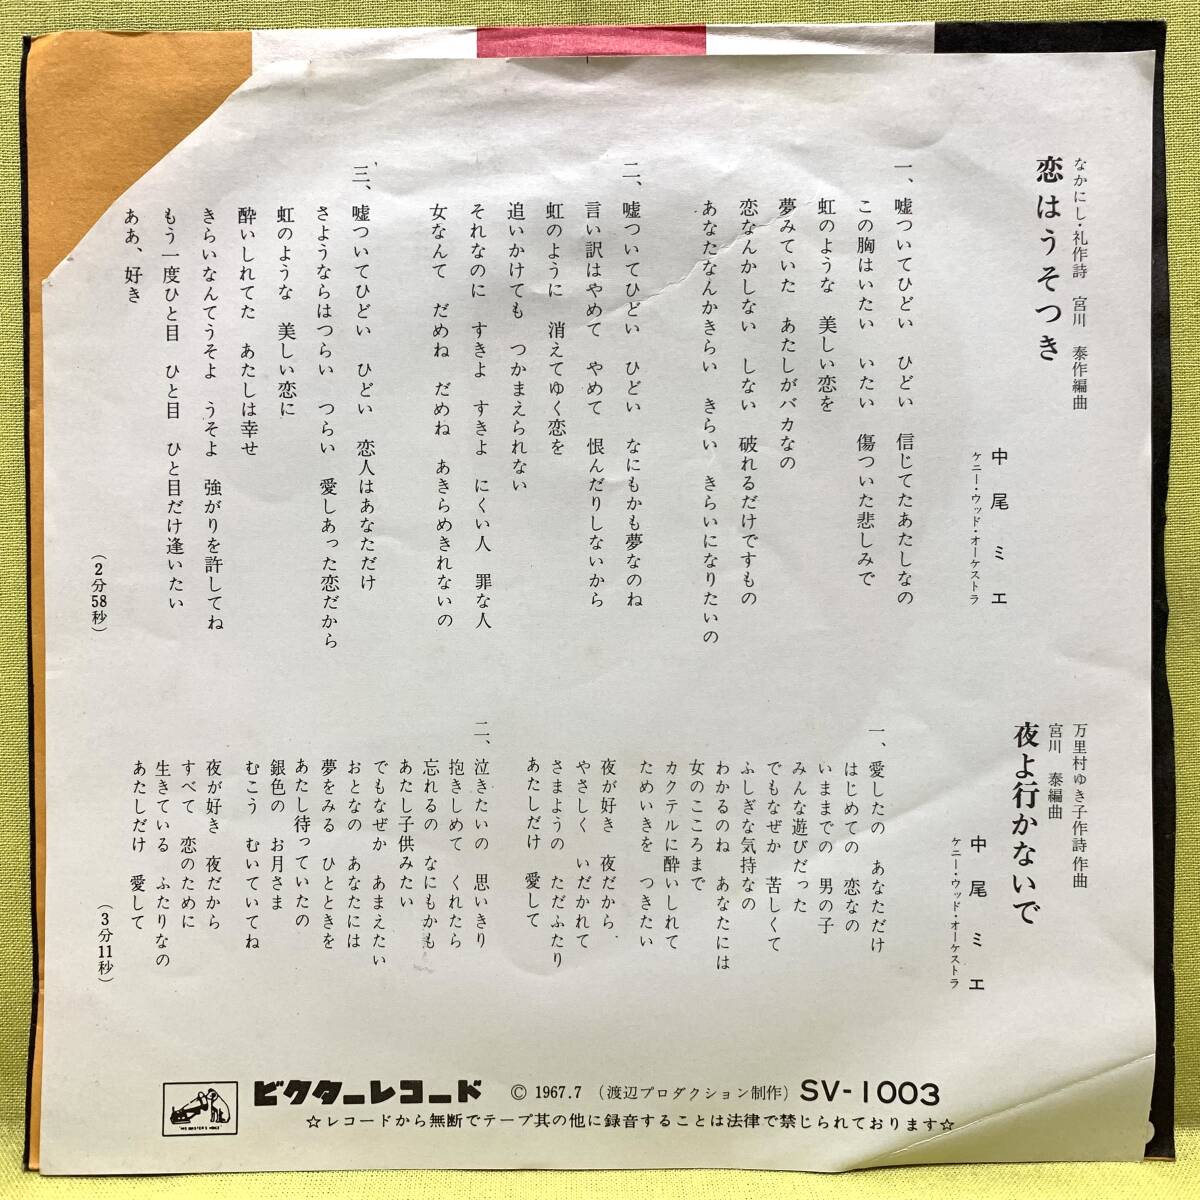 なかにし・礼作詩　宮川　泰作編曲
恋はうそつき
中尾ミエ
ケニー・ウッド・オーケストラ
一、嘘ついてひどい　ひどい　信じてたあたしなの
この胸はいたい　いたい　傷ついた悲しみで
虹のような　美しい恋を
夢みていた　あたしがバカなの
恋なんかしない　しない　破れるだけですもの
あなたなんかきらい　きらい　きらいになりたいの
二、嘘ついてひどい　ひどい　なにもかも夢なのね
言い訳はやめて　やめて　恨んだりしないから
虹のように　消えてゆく恋を
追いかけても　つかまえられない
それなのに　すきよ　すきよ　にくい人　罪な人
女なんて　だめね　だめね　あきらめきれないの
三、嘘ついてひどい　ひどい　恋人はあなただけ
さようならはつらい　つらい　愛しあった恋だから
虹のような　美しい恋に
酔いしれてた　あたしは幸せ
きらいなんてうそよ　うそよ　強がりを許してね
もう一度ひと目　ひと目　ひと目だけ逢いたい
ああ、好き
（2分58秒）
万里村ゆき子作詩作曲
宮川　泰編曲
夜よ行かないで
中尾ミエ
ケニー・ウッド・オーケストラ
一、愛したの　あなただけ
はじめての　恋なの
いままでの　男の子
みんな遊びだった
でもなぜか　苦しくて
ふしぎな気持なの
わかるのね　あなたには
女のこころまで
カクテルに酔いしれて
ためいきを　つきたい
夜が好き　夜だから
やさしく　いだかれて
さまようの　ただふたり
あたしだけ　愛して
二、泣きたいの　思いきり
抱きしめて　くれたら
忘れるの　なにもかも
あたし子供みたい
でもなぜか　あまえたい
おとなの　あなたには
夢をみる　ひとときを
あたし待っていたの
銀色の　お月さま
むこう　むいていてね
夜が好き　夜だから
すべて　恋のために
生きている　ふたりなの
あたしだけ　愛して
（3分11秒）
"HIS MASTER'S VOICE"
ビクターレコード　© 1967.7　（渡辺プロダクション制作）SV-1003
☆レコードから無断でテープ其の他に録音することは法律で禁じられております☆